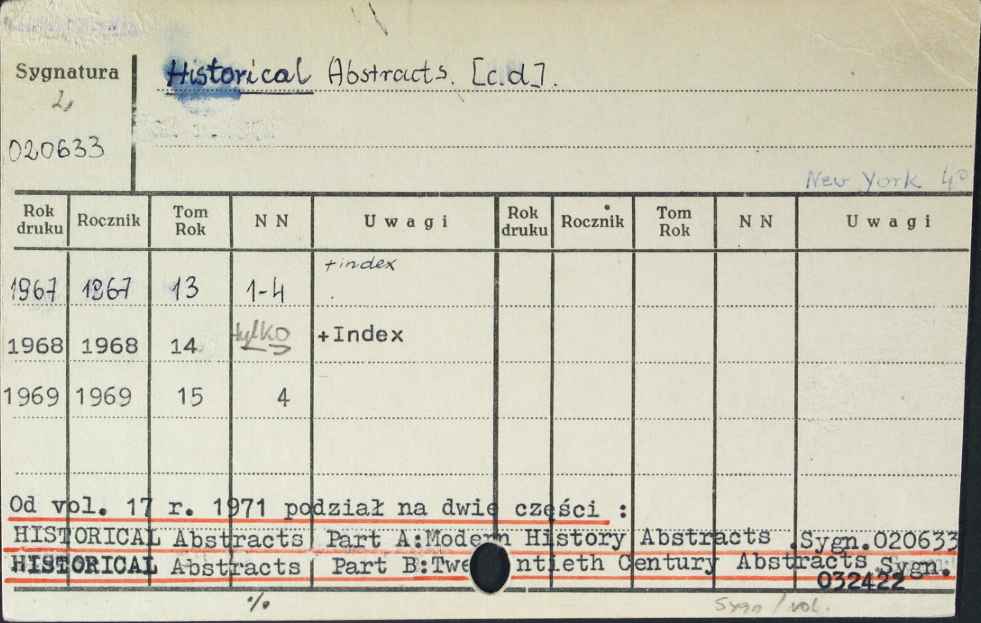 Sygnatura
Historical Abstracts. [c.d].
020633
New York 4°
Rok druku Rocznik Tom Rok NN Uwagi Rok druku Rocznik Tom Rok NN Uwagi
1967 1967 13 1-4 +index
1968 1968 14 tylko +Index
1969 1969 15 4
Od vol. 17 r. 1971 podział na dwie części :
HISTORICAL Abstracts Part A:Modern History Abstracts .Sygn.020633
HISTORICAL Abstracts Part B:Twentieth Century Abstracts.Sygn.
032422
·/.
Sygn / vol.